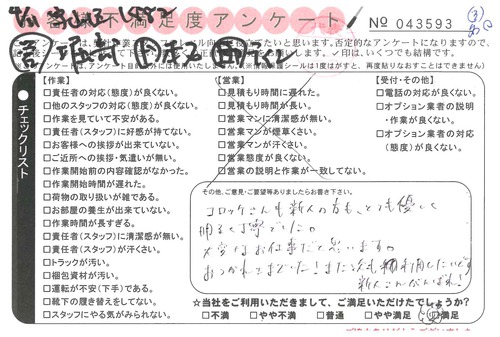 不満足度アンケート
№ 043593
チェックリスト
【作業】
□責任者の対応(態度)が良くない。
□他のスタッフの対応(態度)が良くない。
□作業を見ていて不安がある。
□責任者(スタッフ)に好感が持てない。
□お客様への挨拶が出来ていない。
□ご近所への挨拶・気遣いが無い。
□作業開始前の内容確認がなかった。
□作業開始時間が遅れた。
□荷物の取り扱いが雑である。
□お部屋の養生が出来ていない。
□作業時間が長すぎる。
□責任者(スタッフ)に清潔感が無い。
□責任者(スタッフ)が汗くさい。
□トラックが汚い。
□梱包資材が汚い。
□運転が不安(下手)である。
□靴下の履き替えをしてない。
□スタッフにやる気がみられない。
【営業】
□見積もり時間に遅れた。
□見積もり時間が長い。
□営業マンに清潔感が無い。
□営業マンが煙草くさい。
□営業マンが汗くさい。
□営業態度が良くない。
□営業の説明と作業が一致してない。
【受付・その他】
□電話の対応が良くない。
□オプション業者の説明
・作業が良くない。
□オプション業者の対応
(態度)が良くない。
その他、ご意見・ご要望等ありましたらお書き下さい。
コロッケさんも新人の方も、とても優しく
明るく丁寧でした。
大変なお仕事だと思います。
おつかれさまでした!また次も利用したいです
新人さんがんばれ!
☆当社をご利用いただきまして、ご満足いただけたでしょうか?
□不満 □やや不満 □普通 □やや満足 □満足